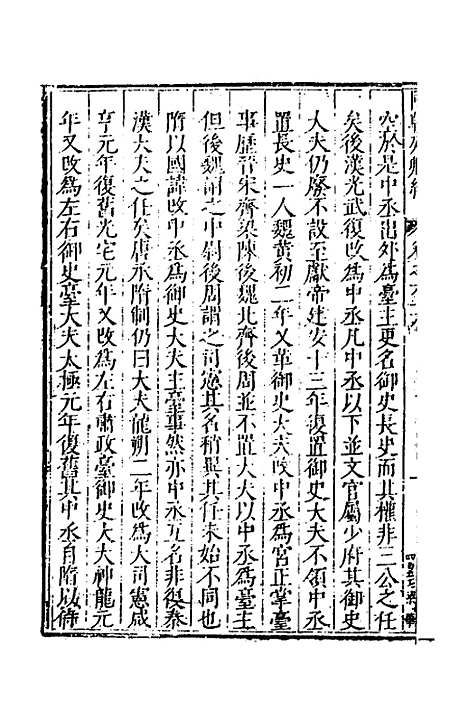 空於是中丞出外為臺主更名御史長史而其權非三公之任
矣後漢光武復改為中丞凡中丞以下並文官屬少府其御史
大夫仍廢不設至獻帝建安十三年復置御史大夫不領中丞
置長史一人魏黃初二年又革御史大夫改中丞為宮正掌臺
事歷晉宋齊梁陳後魏北齊後周並不置大夫以中丞為臺主
但後魏謂之中尉後周謂之司憲其名稍異其任未始不同也
隋以國諱改中丞為御史大夫主臺事然亦中丞互名非復秦
漢大夫之任矣唐承隋制仍曰大夫龍朔二年改為大司憲咸
亨元年復舊光宅元年又改為左右肅政臺御史大夫神龍元
年又改為左右御史臺大夫太極元年復舊其中丞自隋以侍